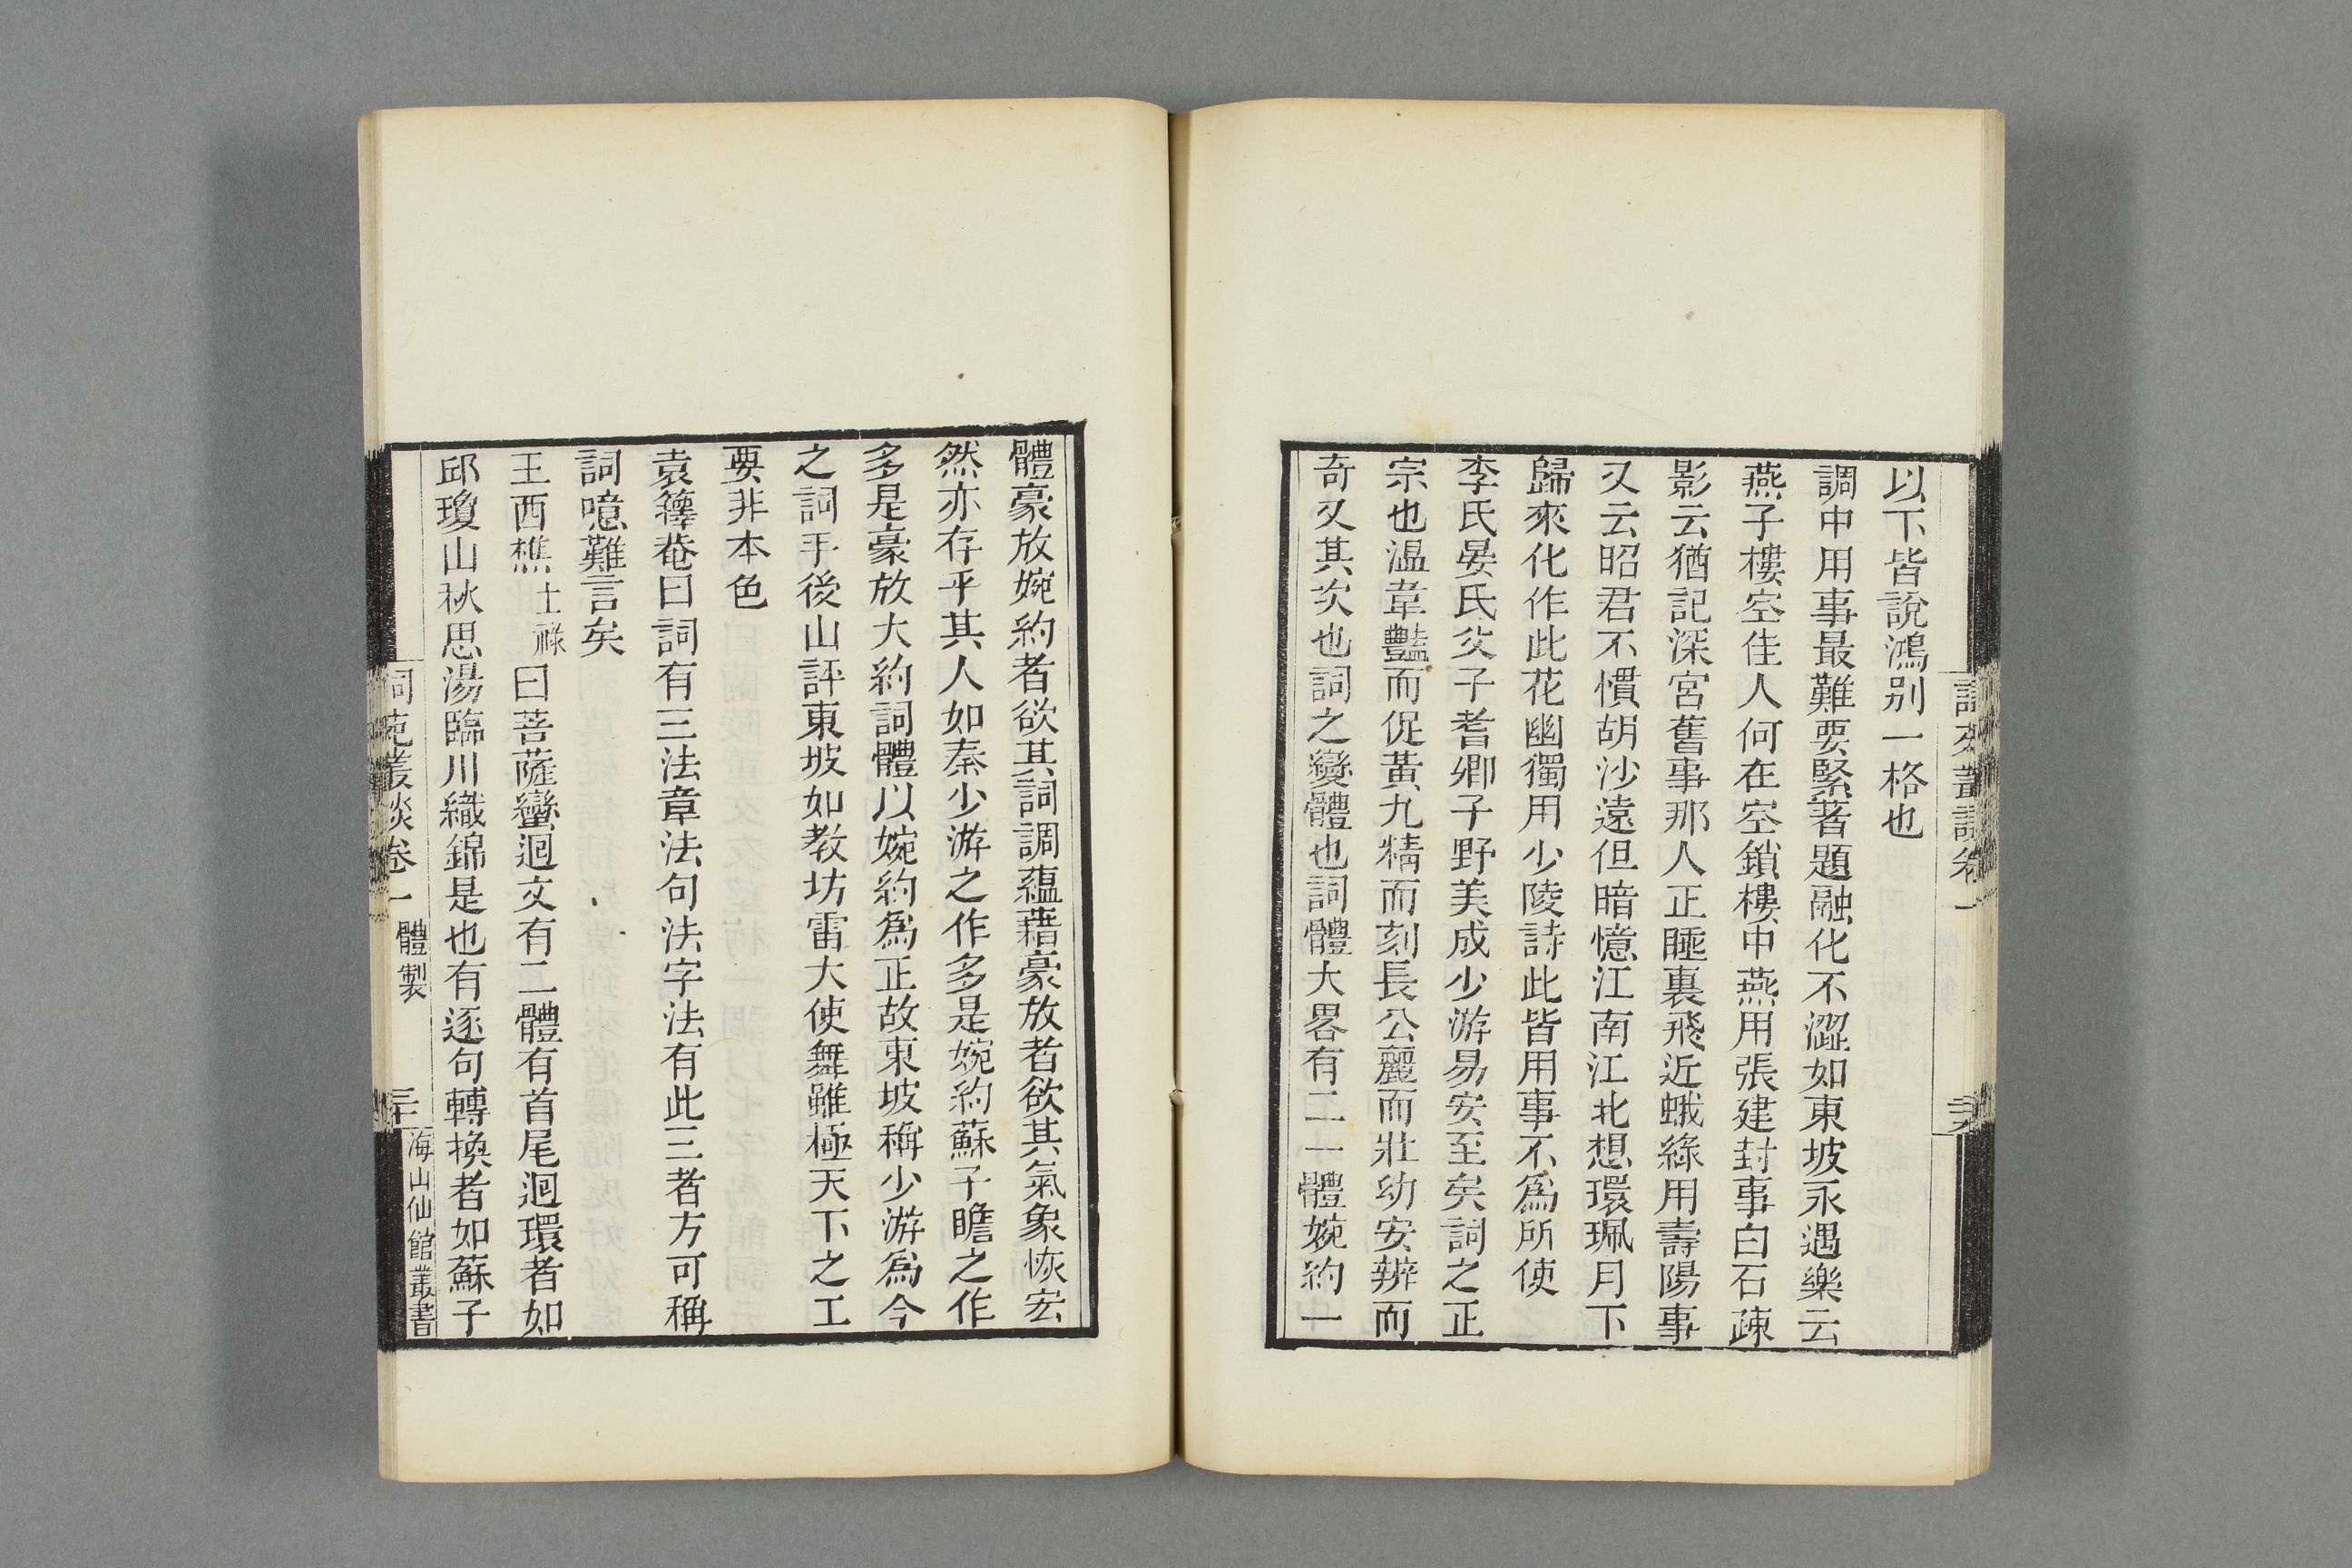 以下皆說鴻别一格也
調中用事最難要緊著題融化不澀如東坡永遇樂云
燕子樓空佳人何在空鎖樓中燕用張建封事白石疎
影云猶記深宮舊事那人正睡裏飛近蛾綠用壽陽事
又云昭君不慣胡沙遠但暗憶江南江北想環珮月下
歸來化作此花幽獨用少陵詩此皆用事不為所使
李氏晏氏父子耆卿子野美成少游易安至矣詞之正
宗也溫韋豔而促黃九精而刻長公麗而壯幼安辨而
奇又其次也詞之變體也詞體大畧有二一體婉約一
體豪放婉約者欲其詞調蘊藉豪放者欲其氣象恢宏
然亦存乎其人如秦少游之作多是婉約蘇子瞻之作
多是豪放大約詞體以婉約為正故東坡稱少游為今
之詞手後山評東坡如教坊雷大使舞雖極天下之工
要非本色
袁籜菴曰詞有三法章法句法字法有此三者方可稱
詞噫難言矣
王西樵士祿曰菩薩蠻迴文有二體有首尾迴環者如
邱瓊山秋思湯臨川織錦是也有逐句轉換者如蘇子
詞苑叢談卷一 體製 三十 海山仙館叢書